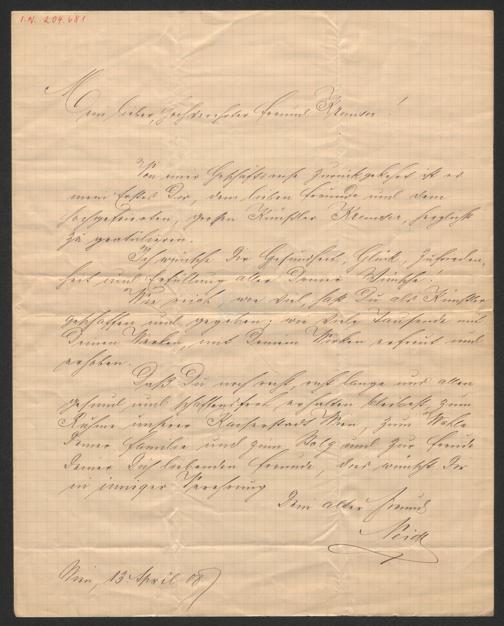 I.N. 204.681
Mein lieber, hochverehrter Freund Kremser!
Von einer Geschäftsreise zurückgekehrt ist es
mein Erstes Dir, dem lieben Freunde und dem
hochgefeierten, großen Künstler Kremser, herzlichst
zu gratulieren.
Ich wünsche Dir Gesundheit, Glück, Zufrieden-
heit und Erfüllung aller Deiner Wünsche!
Wie reich, wie viel, hast Du als Künstler
geschaffen und gegeben; wie viele Tausende mit
Deinen Werken, mit Deinem Wirken erfreut und
erhoben.
Daß Du noch recht, recht lange uns allen
gesund und schaffensfroh erhalten bleibest, zum
Ruhme unserer Kaiserstadt Wien, zum Wohle
Deiner Familie und zum Stolz und zur Freude
Deiner Dich liebenden Freunde, dies wünscht Dir
in inniger Verehrung
Dein alter Freund
Wien, 13. April 08